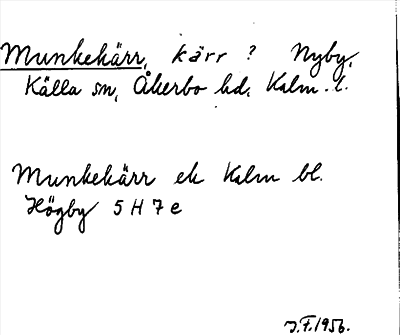 Munkekärr, kärr? Nyby,
Källa sn, Åkerbo hd, Kalm. l.
Munkekärr ek Kalm bl.
Högby 5 H 7 e
J.F. 1956.